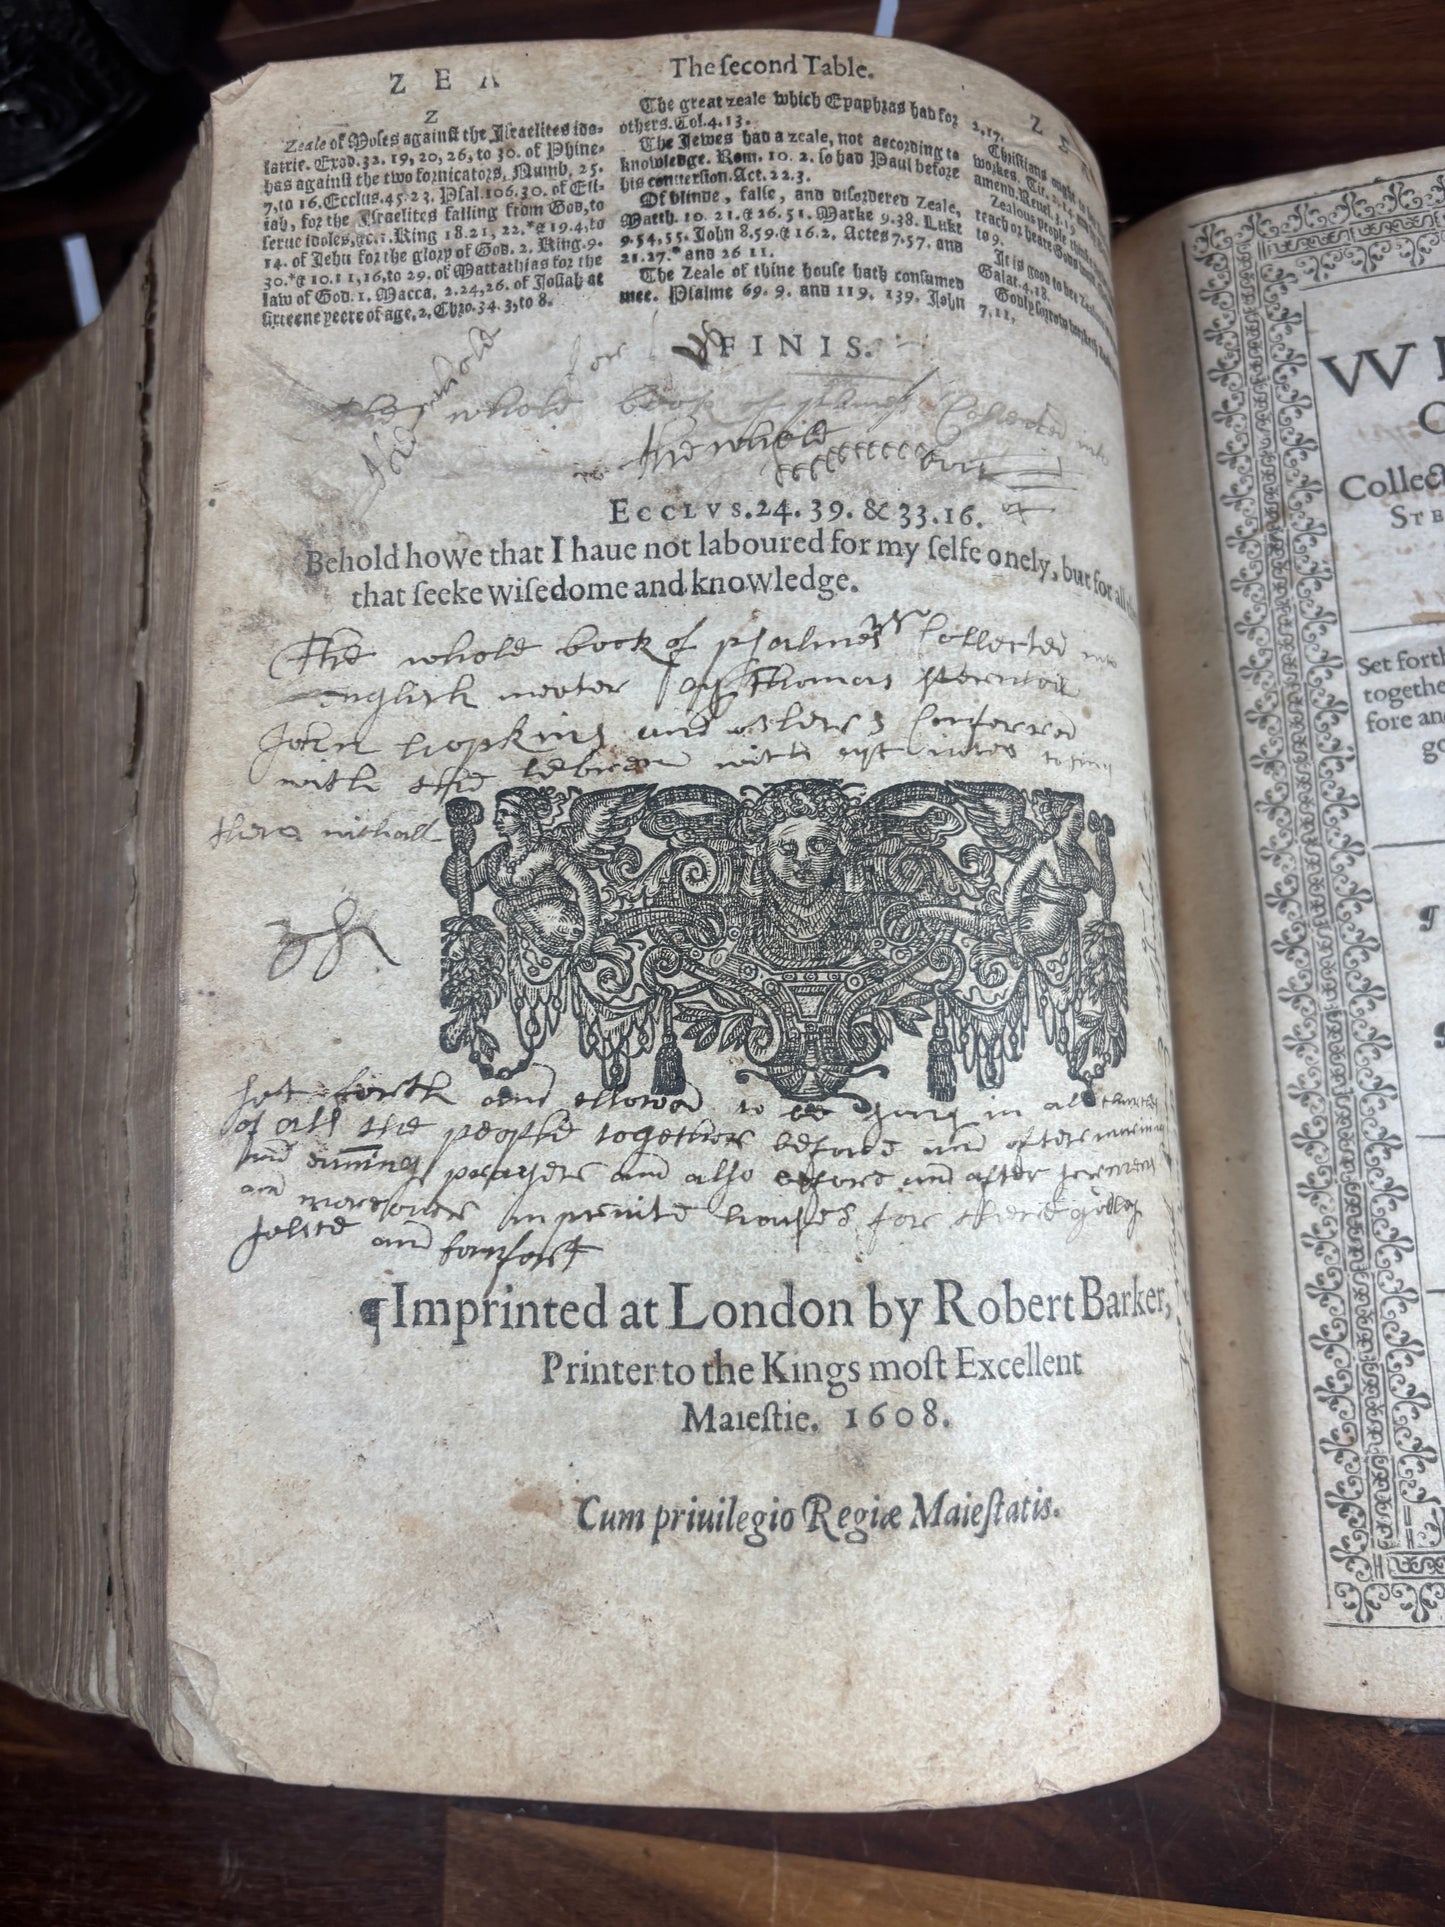 The ſecond Table.
Z E A
Z
Zeale of Moſes against the Iſraelites ido-
latrie. Exod. 32. 19, 20, 26, to 30. of Phine-
has against the two fornicators, Numb. 25.
7, to 16. Ecclus. 45. 23. Pſal. 106. 30. of Eli-
iah, for the Iſraelites falling from God, to
ſerue idoles, &c. 1. King 18. 21, 22.* & 19. 4, to
14. of Iehu for the glory of God. 2. King. 9.
30.* & 10. 11, 16, to 29. of Mattathias for the
law of God. 1. Macca. 2. 24, 26. of Joſiah at
ſixteene yeere of age, 2. Chro. 34. 3, to 8.
The great zeale which Epaphras had for
others. Col. 4. 13.
The Jewes had a zeale, not according to
knowledge. Rom. 10. 2. ſo had Paul before
his conuerſion. Act. 22. 3.
Of blinde, falſe, and diſordered Zeale,
Matth. 10. 21. & 26. 51. Marke 9. 38. Luke
9. 54, 55. John 8. 59. & 16. 2. Actes 7. 57. and
21. 27.* and 26 11.
The Zeale of thine houſe hath conſumed
mee. Pſalme 69. 9. and 119. 139. John
2, 17.
Chriſtians ought to
workes. Tit. 2. 14 and
amend. Reuel. 3. 19
Zealous people
teach or heare Gods word
to 9.
It is good to bee Zealous
Galat. 4. 18.
Godly ſorrow
7, 11,
FINIS.
for
the whole book of psalmes Collected into
the whole
ECCLVS. 24. 39. & 33. 16.
of
Behold howe that I haue not laboured for my ſelfe onely, but for all
that ſeeke wiſedome and knowledge.
The whole book of psalmes Collected into
english meeter by Thomas sternold
John hopkins and others Conferred
with the hebrew with apt notes to sing
them withall
set forth and allowed to be sung in all churches
of all the people together before and after morning
and evning prayer and also before and after sermons
and moreover in private houses for there godly
solace and Comfort
¶Imprinted at London by Robert Barker,
Printer to the Kings moſt Excellent
Maieſtie. 1608.
Cum priuilegio Regiæ Maieſtatis.
W
Collect
Set forth
together
fore an